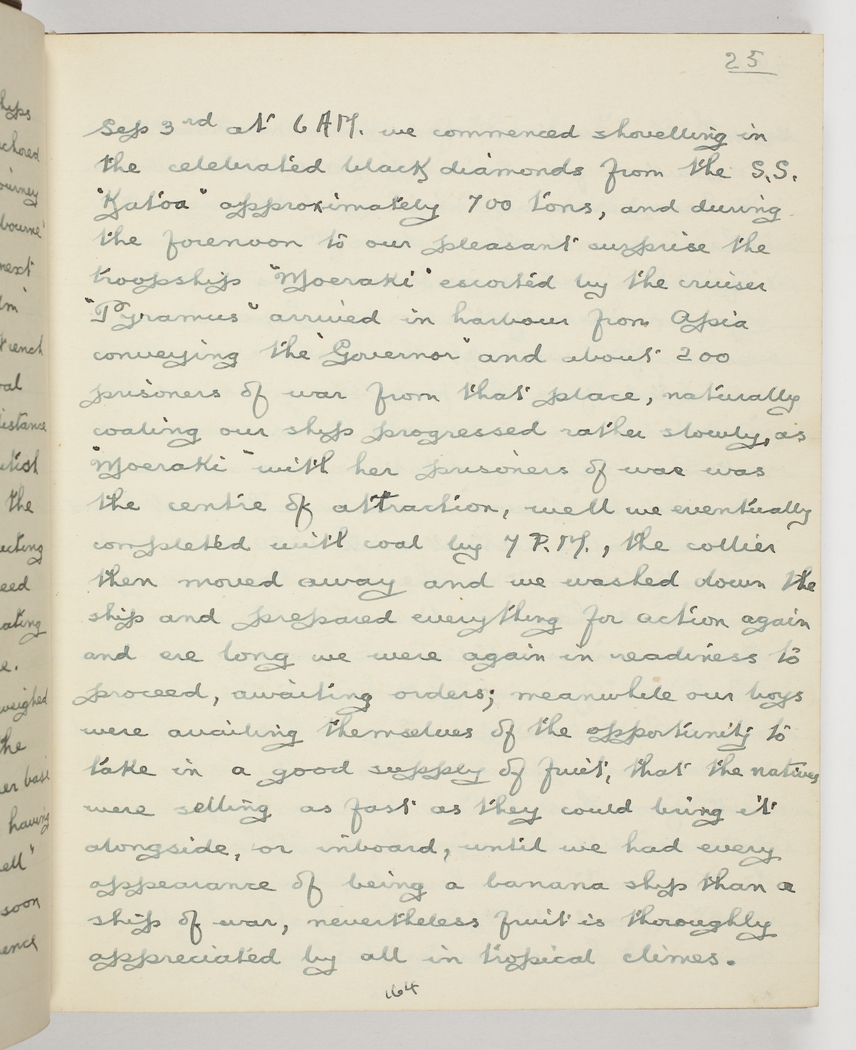 25
Sep 3rd at 6 AM. we commenced shovelling in
the celebrated black diamonds from the S.S.
"Katoa" approximately 700 tons, and during
the forenoon to our pleasant surprise the
troopship "Moeraki" escorted by the cruiser
"Pyramus" arrived in harbour from Apia
conveying the "Governor" and about 200
prisoners of war from that place, naturally
coaling our ship progressed rather slowly, as
"Moeraki" with her prisoners of war was
the centre of attraction, well we eventually
completed with coal by 7 P.M., the collier
then moved away and we washed down the
ship and prepared everything for action again
and ere long we were again in readiness to
proceed, awaiting orders; meanwhile our boys
were availing themselves of the opportunity to
take in a good supply of fruit, that the natives
were selling as fast as they could bring it
alongside, or inboard, until we had every
appearance of being a banana ship than a
ship of war, nevertheless fruit is thoroughly
appreciated by all in tropical climes.
164